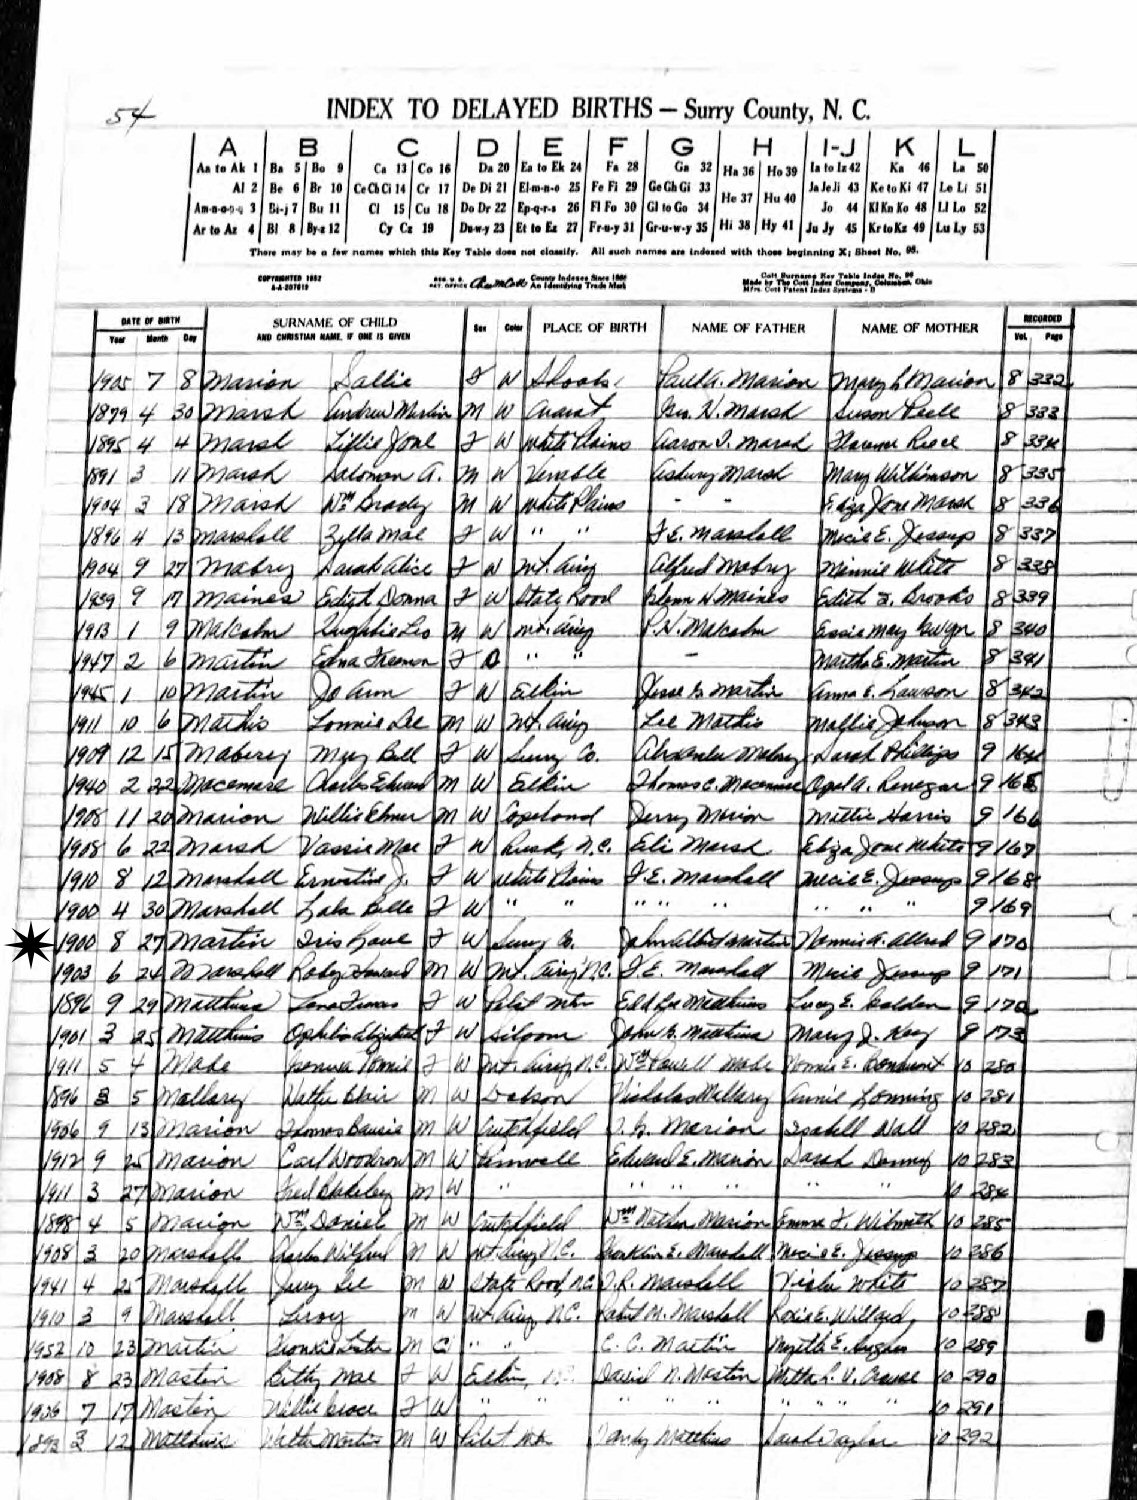 54
INDEX TO DELAYED BIRTHS — Surry County, N. C.
A B C D E F G H I-J K L
Aa to Ak 1 Ba 5 Bo 9 Ca 13 Co 16 Da 20 Ea to Ek 24 Fa 28 Ga 32 Ha 36 Ho 39 Ia to Iz 42 Ka 46 La 50
Al 2 Be 6 Br 10 Ce Ch Ci 14 Cr 17 De Di 21 El-m-n-o 25 Fe Fi 29 Ge Gh Gi 33 He 37 Hu 40 Ja Je Ji 43 Ke to Ki 47 Le Li 51
Am-n-o-p-q 3 Bi-j 7 Bu 11 Cl 15 Cu 18 Do Dr 22 Ep-q-r-s 26 Fl Fo 30 Gl to Go 34 Jo 44 Kl Kn Ko 48 Ll Lo 52
Ar to Az 4 Bl 8 By-z 12 Cy Cz 19 Du-w-y 23 Et to Ez 27 Fr-u-y 31 Gr-u-w-y 35 Hi 38 Hy 41 Ju Jy 45 Kr to Kz 49 Lu Ly 53
There may be a few names which this Key Table does not classify. All such names are indexed with those beginning X; Sheet No. 98.
COPYRIGHTED 1952 REG. U. S. County Indexes Since 1888 Cott Surname Key Table Index No. 96
A-A-207619 PAT. OFFICE An Identifying Trade Mark Made by The Cott Index Company, Columbus, Ohio
Mfrs. Cott Patent Index Systems - B
DATE OF BIRTH SURNAME OF CHILD Sex Color PLACE OF BIRTH NAME OF FATHER NAME OF MOTHER RECORDED
Year Month Day AND CHRISTIAN NAME, IF ONE IS GIVEN Vol. Page
1905 7 8 Marion Sallie F W Shoals Paul A. Marion Mary L Marion 8 332
1879 4 30 Marsh Andrew Martin M W Ararat Geo. H. Marsh Susan 8 333
1895 4 4 Marsh Lillie Jone F W White Plains Aaron Marsh Florence Reece 8 334
1891 3 11 Marsh Solomon A. M W Venable Asbury Marsh Mary Wilkinson 8 335
1904 3 18 Marsh Wm Brady M W White Plains - - Eliza Jone Marsh 8 336
1896 4 13 Marshall Zella Mae F W " " F. E. Marshall Mecie E. Jessup 8 337
1904 9 27 Mabry Sarah Alice F W Mt. Airy Alfred Mabry Minnie White 8 338
1939 9 17 Maines Edith Donna F W State Road Glenn H Maines Edith Brooks 8 339
1913 1 9 Malcolm Leo M W Mt. Airy P. H. Malcolm Essie May Gwyn 8 340
1947 2 6 Martin Edna Freeman F " " - Martha E. Martin 8 341
1945 1 10 Martin Jo Ann F W Elkin Jesse G Martin Anna E. Lawson 8 342
1911 10 6 Mathis Lonnie Lee M W Mt. Airy Lee Mathis Mollie Johnson 8 343
1909 12 15 Maberry May Bell F W Surry Co. Alexander Mabry Sarah Phillips 9 164
1940 2 22 Macemore Charles Edward M W Elkin Thomas C. Macemore Opal A. Renegar 9 165
1908 11 20 Marion Willie Elmer M W Copeland Jerry Marion Mittie Harris 9 166
1908 6 22 Marsh Vassie Mae F W Rusk, N.C. Eli Marsh Eliza Jone White 9 167
1910 8 12 Marshall Ernestine J. F W White Plains F. E. Marshall Mecie E. Jessup 9 168
1900 4 30 Marshall Lala Belle F W " " " " " " " " 9 169
1900 8 27 Martin Iris F W Surry Co. John Albert Martin Nannie A. Allred 9 170
1903 6 24 Marshall Howard M W Mt. Airy N.C. F. E. Marshall Mecie Jessup 9 171
1896 9 29 Matthews Lena F W Pilot Mtn Lee Matthews Lucy E. Golden 9 172
1901 3 25 Matthews Ophelia Elizabeth F W Siloam John G. Matthews Mary J. Key 9 173
1911 5 4 Mabe F W Mt. Airy, N.C. Wm Powell Mabe 10 280
1896 3 5 Mallary Blair M W Dobson Nicholas Mallary Annie 10 281
1906 9 13 Marion Thomas M W Crutchfield Marion Isabell Wall 10 282
1912 9 25 Marion Carl Woodrow M W Edward E. Marion Sarah Denny 10 283
1911 3 27 Marion Fred M W " " " " " " " 10 284
1898 4 5 Marion Wm Daniel M W Crutchfield Wm Nathan Marion Emma F. Wilmoth 10 285
1908 3 20 Marshall Charles Wilfred M W Mt. Airy N.C. Franklin E. Marshall Mecie E. Jessup 10 286
1941 4 25 Marshall Jerry Lee M W State Road, N.C. Marshall White 10 287
1910 3 9 Marshall Leroy M W Mt. Airy, N.C. Robt M. Marshall Roxie E. Willard 10 288
1952 10 23 Martin M C " " C. C. Martin Myrtle E. Hughes 10 289
1908 8 23 Mastin Betty Mae F W Elkin, N.C. David N. Mastin 10 290
1906 7 17 Mastin Nellie Grace F W " " " " " " " " " 10 291
1893 3 12 Matthews Walter M W Pilot Mtn Matthews Sarah Taylor 10 292